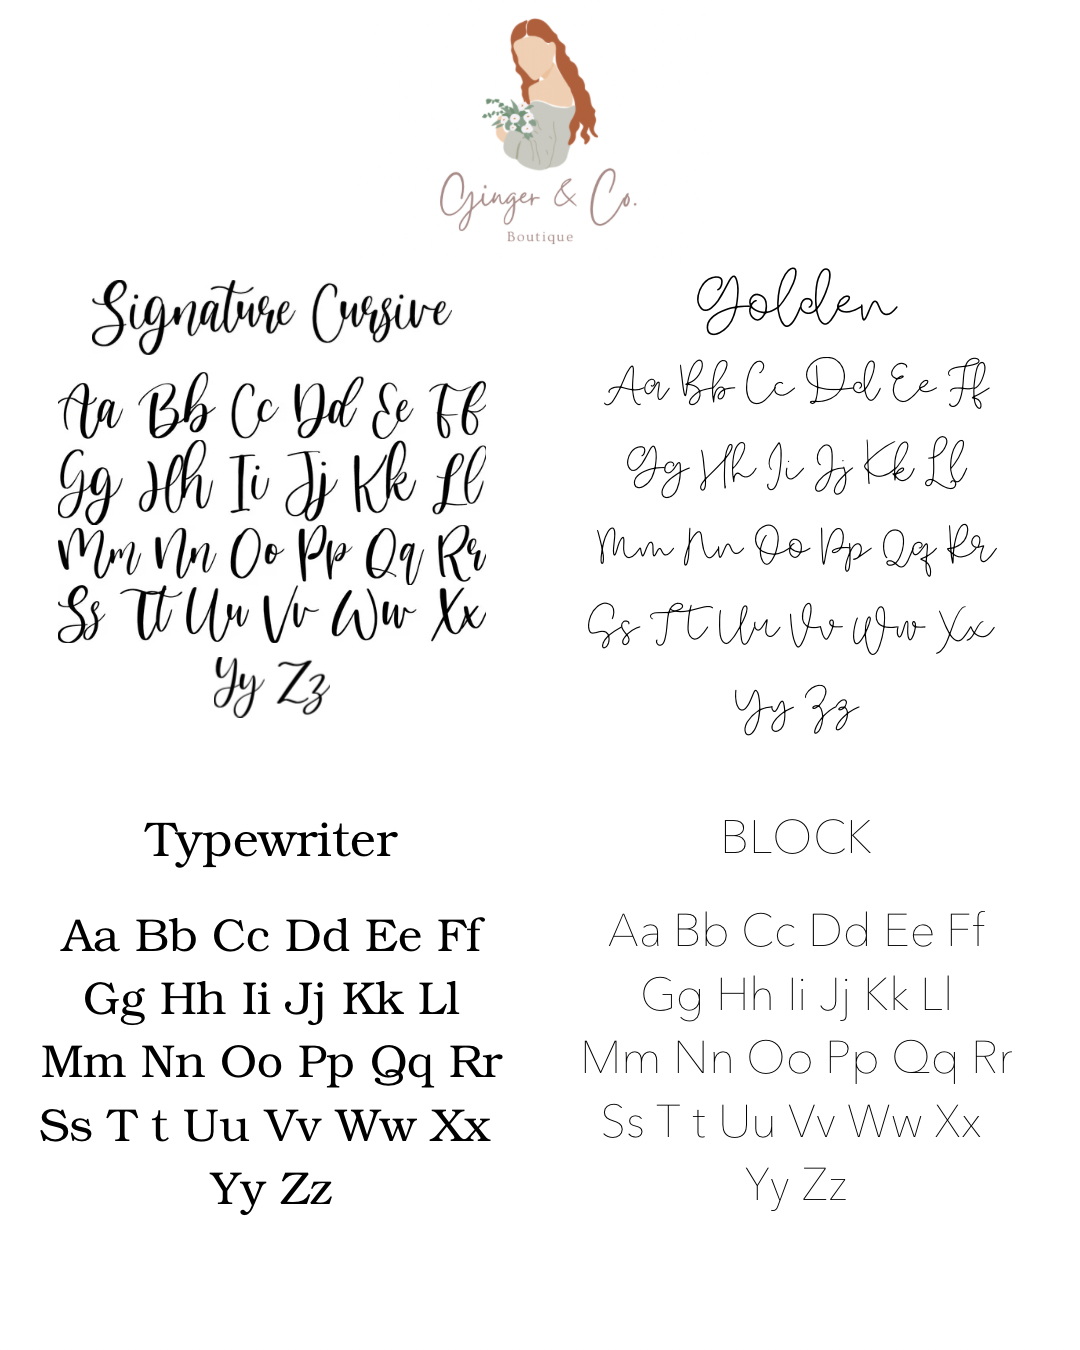 Ginger & Co.
Boutique
Signature Cursive
Aa Bb Cc Dd Ee Ff
Gg Hh Ii Jj Kk Ll
Mm Nn Oo Pp Qq Rr
Ss Tt Uu Vv Ww Xx
Yy Zz
Golden
Aa Bb Cc Dd Ee Ff
Gg Hh Ii Jj Kk Ll
Mm Nn Oo Pp Qq Rr
Ss Tt Uu Vv Ww Xx
Yy Zz
Typewriter
Aa Bb Cc Dd Ee Ff
Gg Hh Ii Jj Kk Ll
Mm Nn Oo Pp Qq Rr
Ss T t Uu Vv Ww Xx
Yy Zz
BLOCK
Aa Bb Cc Dd Ee Ff
Gg Hh Ii Jj Kk Ll
Mm Nn Oo Pp Qq Rr
Ss T t Uu Vv Ww Xx
Yy Zz